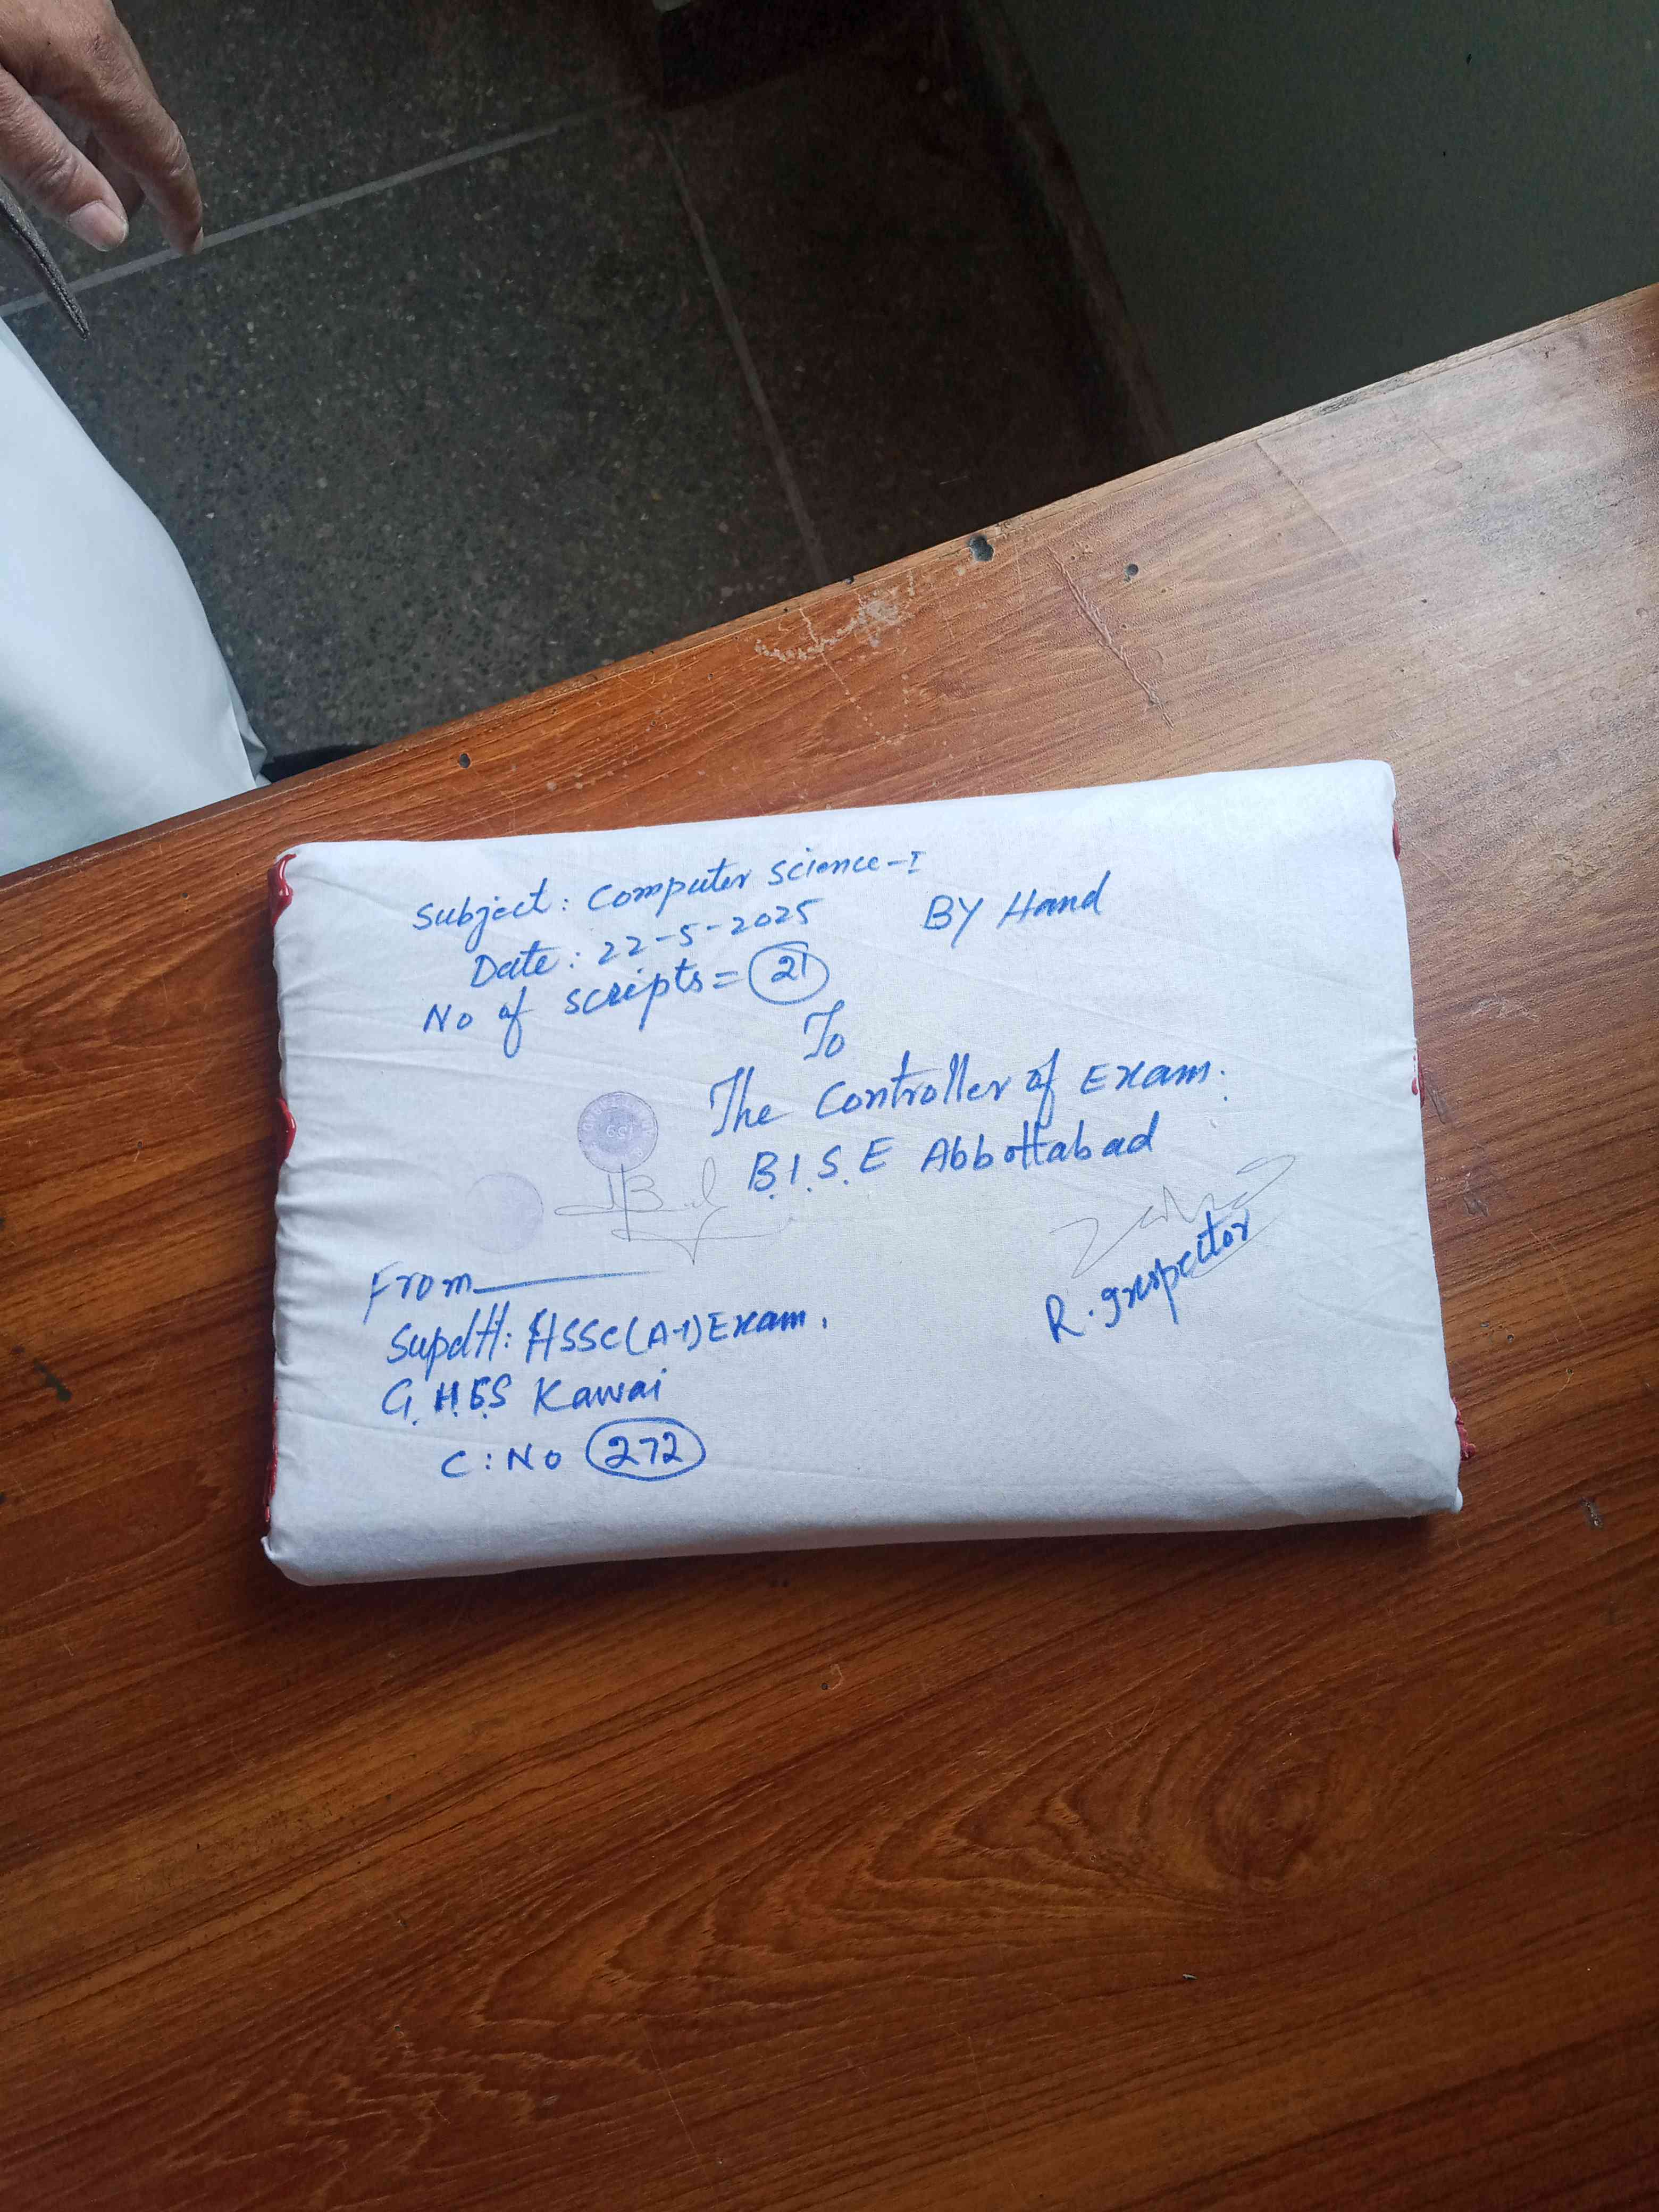 Subject: Computer Science-I
BY Hand
Date: 22-5-2025
No of scripts= 21
To
The Controller of Exam.
B.I.S.E Abbottabad
R. Inspector
From
Supdtt: HSSC(A-I)Exam.
G.H.S.S Kawai
C: No 272